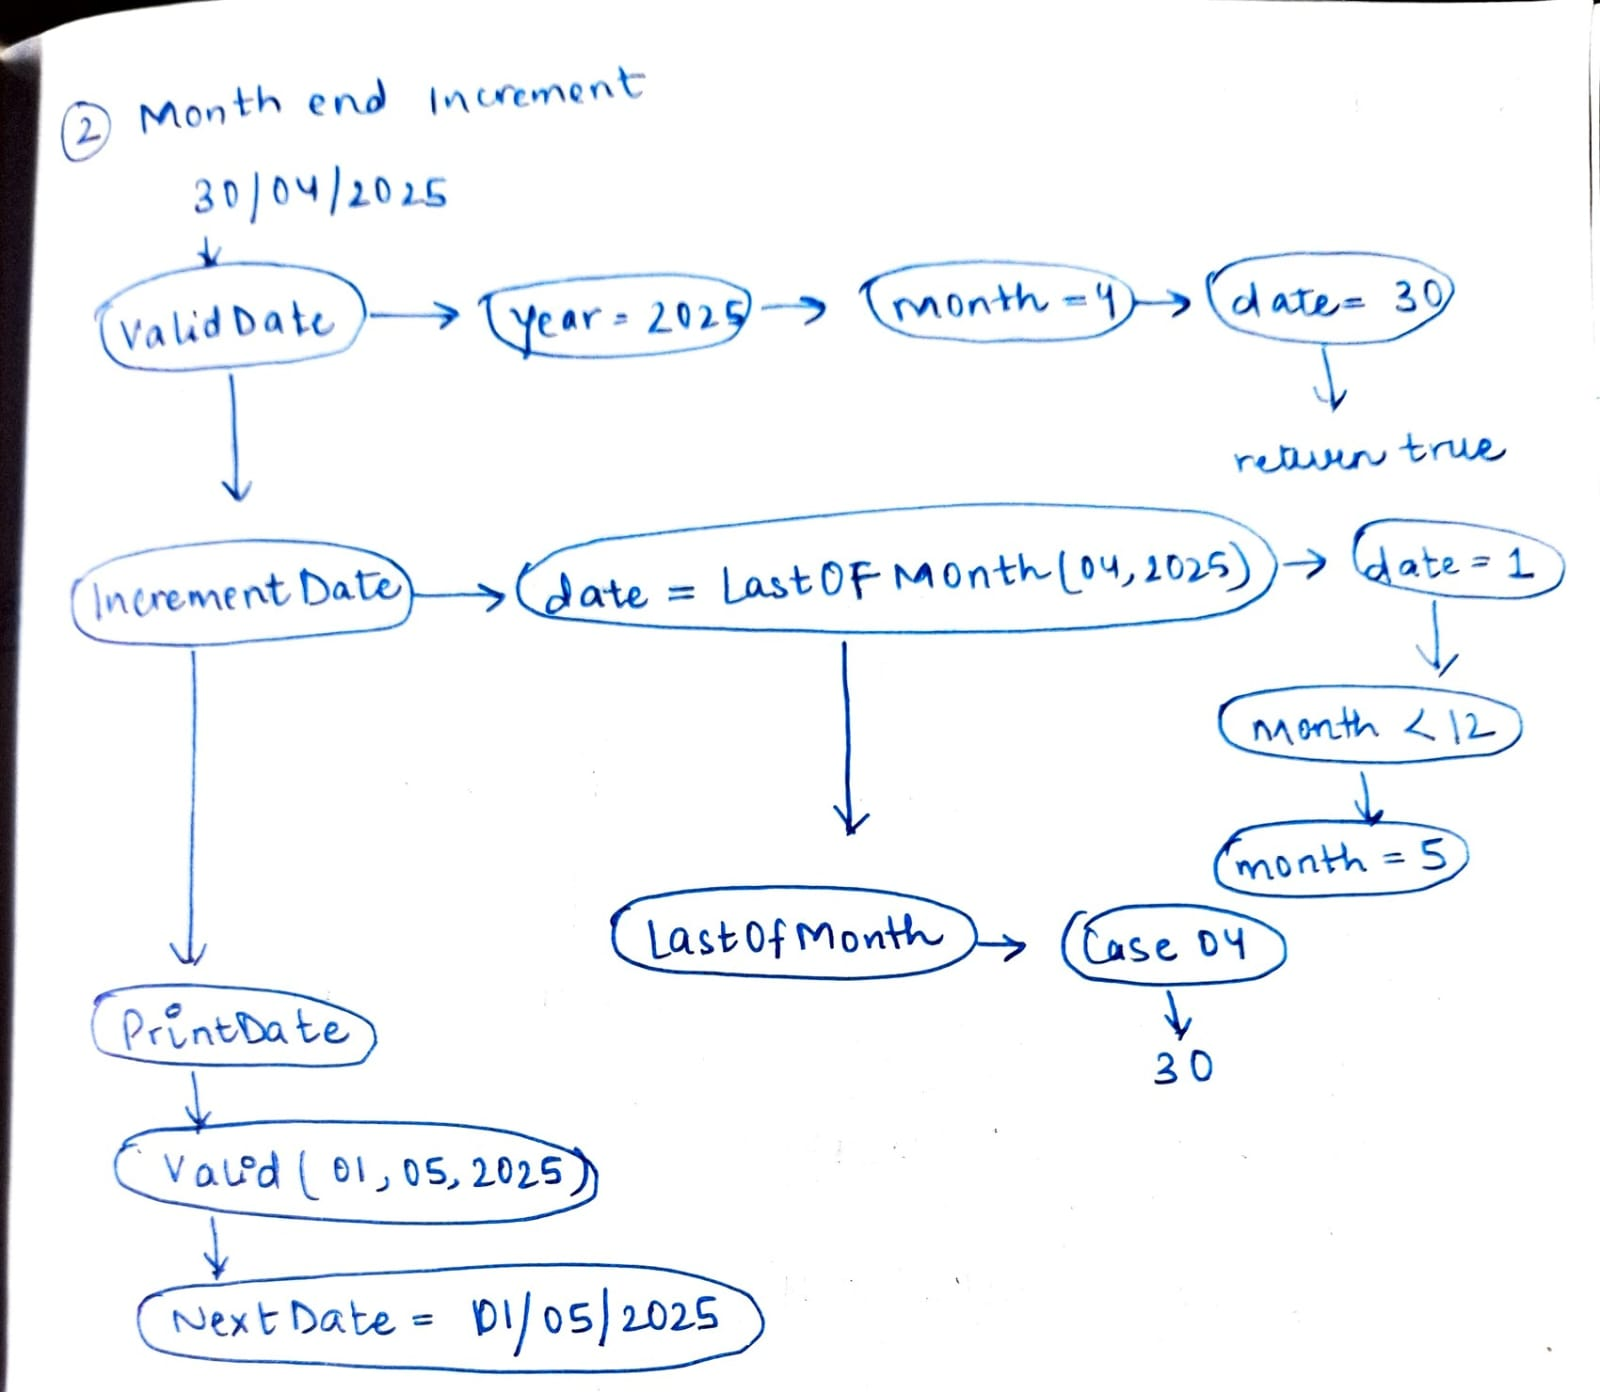 ② Month end Increment
30/04/2025
ValidDate → year = 2025 → month = 4 → date = 30
return true
IncrementDate → date = LastOFMonth(04,2025) → date = 1
month < 12
month = 5
LastOfMonth → Case 04
30
PrintDate
Valid (01,05,2025)
NextDate = 01/05/2025